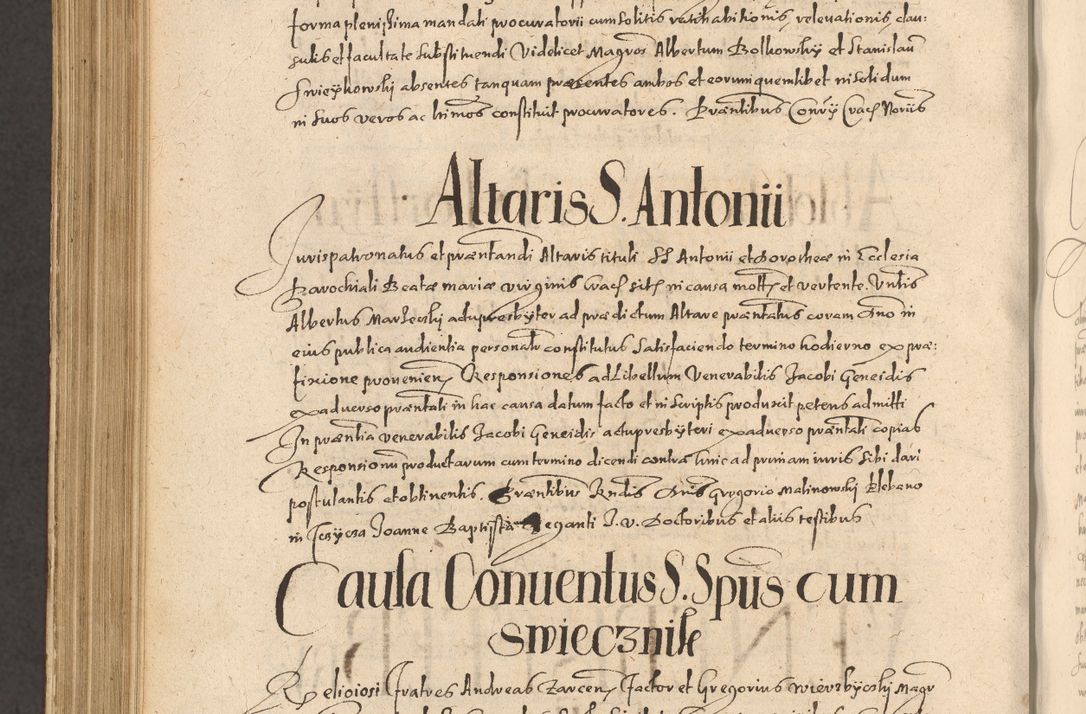 forma plenissima mandati procuratorii cum solitis ratihabitionis, relevationis clau:
sulis et facultate substituendi Videlicet Magros Albertum Bolkowsky et Stanislau
Swieykowsky absentes tanquam praesentes ambos et eorum quemlibet in solidum
in suos veros ac ltimos constituit procuratores. Praentibus Notriis
Altaris S. Antonii
Jurispatronatus et praentandi Altaris tituli SS Antonii et Dorotheae in Ecclesia
Parochiali Beatae mariae virginis Crac sit in causa mott et vertente. Vnlis
Albertus actupresbyter ad praedictum Altare praentatus coram dno in
eius publica audientia personalr constitutus satisfaciendo termino hodierno ex prae:
fixione provenien Responsiones ad Libellum Venerabilis Jacobi Geneidis
ex adverso praentati in hac causa datum facto et in scriptis produxit petens admitti
In praentia venerabilis Jacobi Geneidis actupresbyteri ex adverso praentati copias
Responsionum productarum cum termino dicendi contra hinc ad primam iuris sibi dari
postulantis et obtinentis. Praentibus Rndis dnis Gregorio Malinowsky Plebano
in Joanne Baptista Reganti J. V. Doctoribus et aliis testibus
Causa Conventus S. Spus cum
swiecznik
Relioiosi Fratres Andreas Zarcen Factor et Gregorius Wierzbycsky Magr